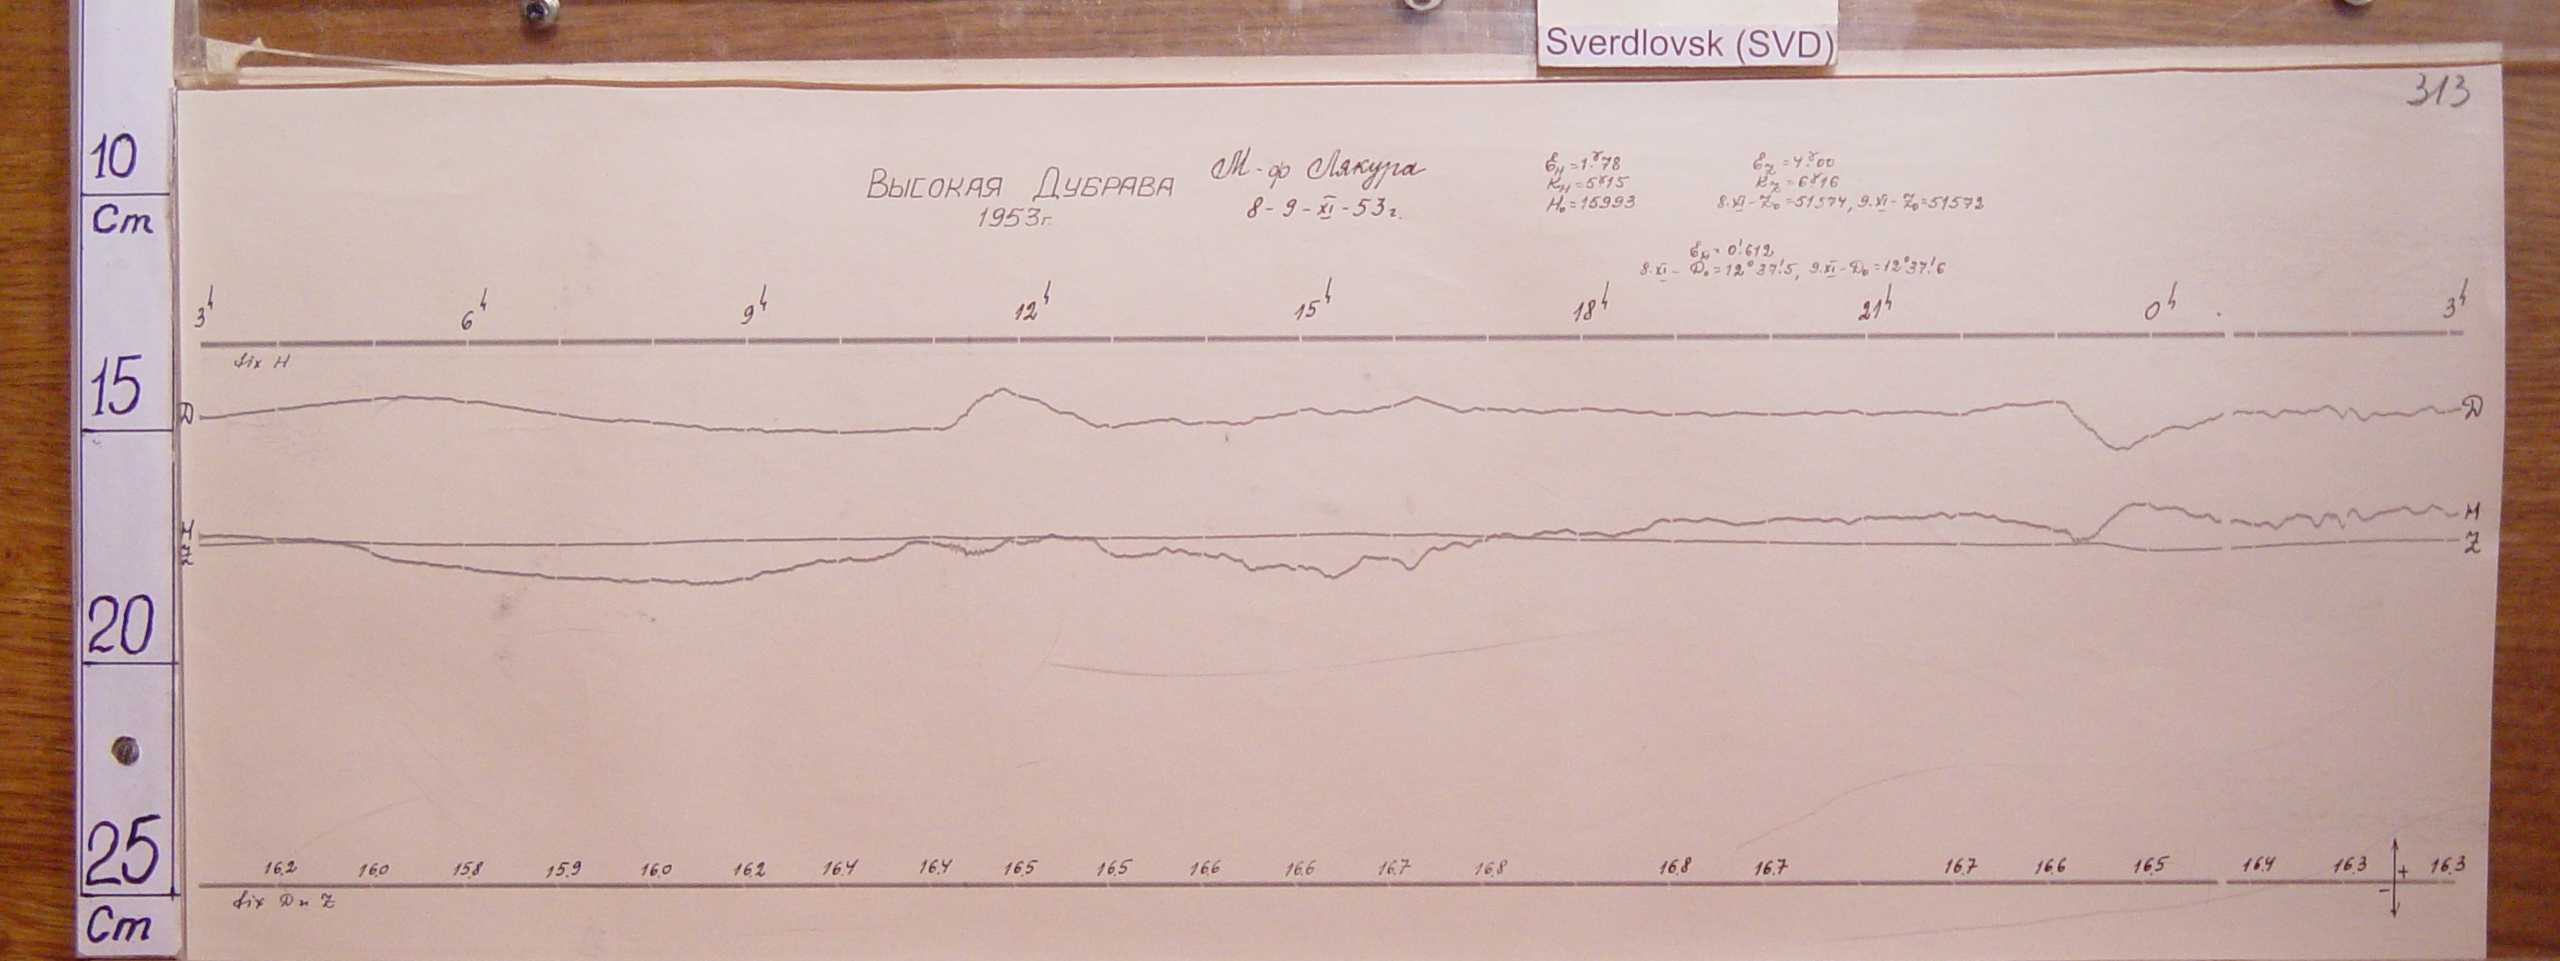 Sverdlovsk (SVD)
313
10
Cm
15
20
25
Cm
ВЫСОКАЯ ДУБРАВА
1953г.
М-ф Лякура
8-9-XI-53г.
Ɛн=1.ᵞ78
Kн=5ᵞ15
H₀=15993
Ɛz=4.ᵞ00
Kz=6ᵞ16
8.XI-Z₀=51574, 9.XI-Z₀=51572
ƐD=0!612
8.XI-D₀=12°37!5, 9.XI-D₀=12°37!6
3ʰ 6ʰ 9ʰ 12ʰ 15ʰ 18ʰ 21ʰ 0ʰ 3ʰ
fix H
D D
H H
Z Z
16.2 16.0 15.8 15.9 16.0 16.2 16.4 16.4 16.5 16.5 16.6 16.6 16.7 16.8 16.8 16.7 16.7 16.6 16.5 16.4 16.3 16.3
+
-
fix D и Z